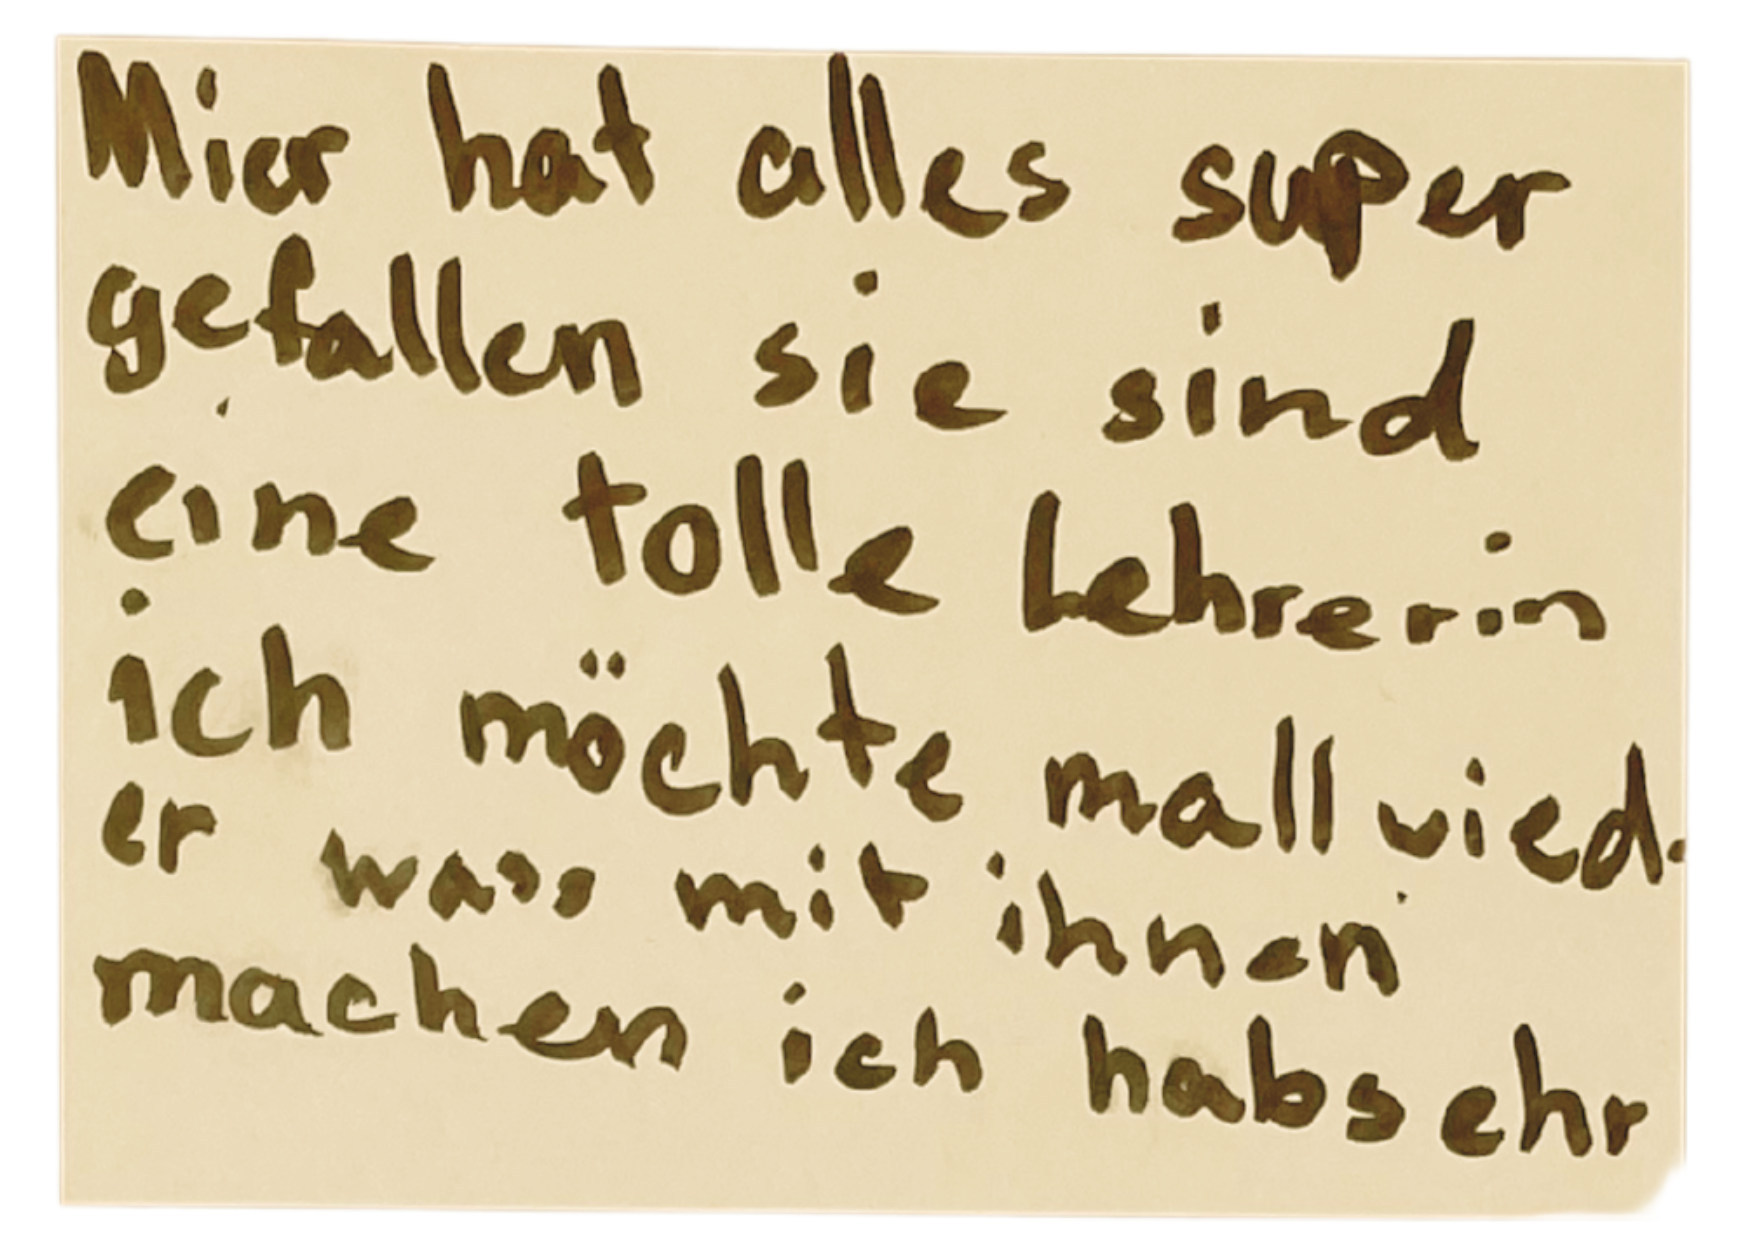 Mier hat alles super
gefallen sie sind
eine tolle Lehrerin
ich möchte mall wied-
er wass mit ihnen
machen ich hab sehr